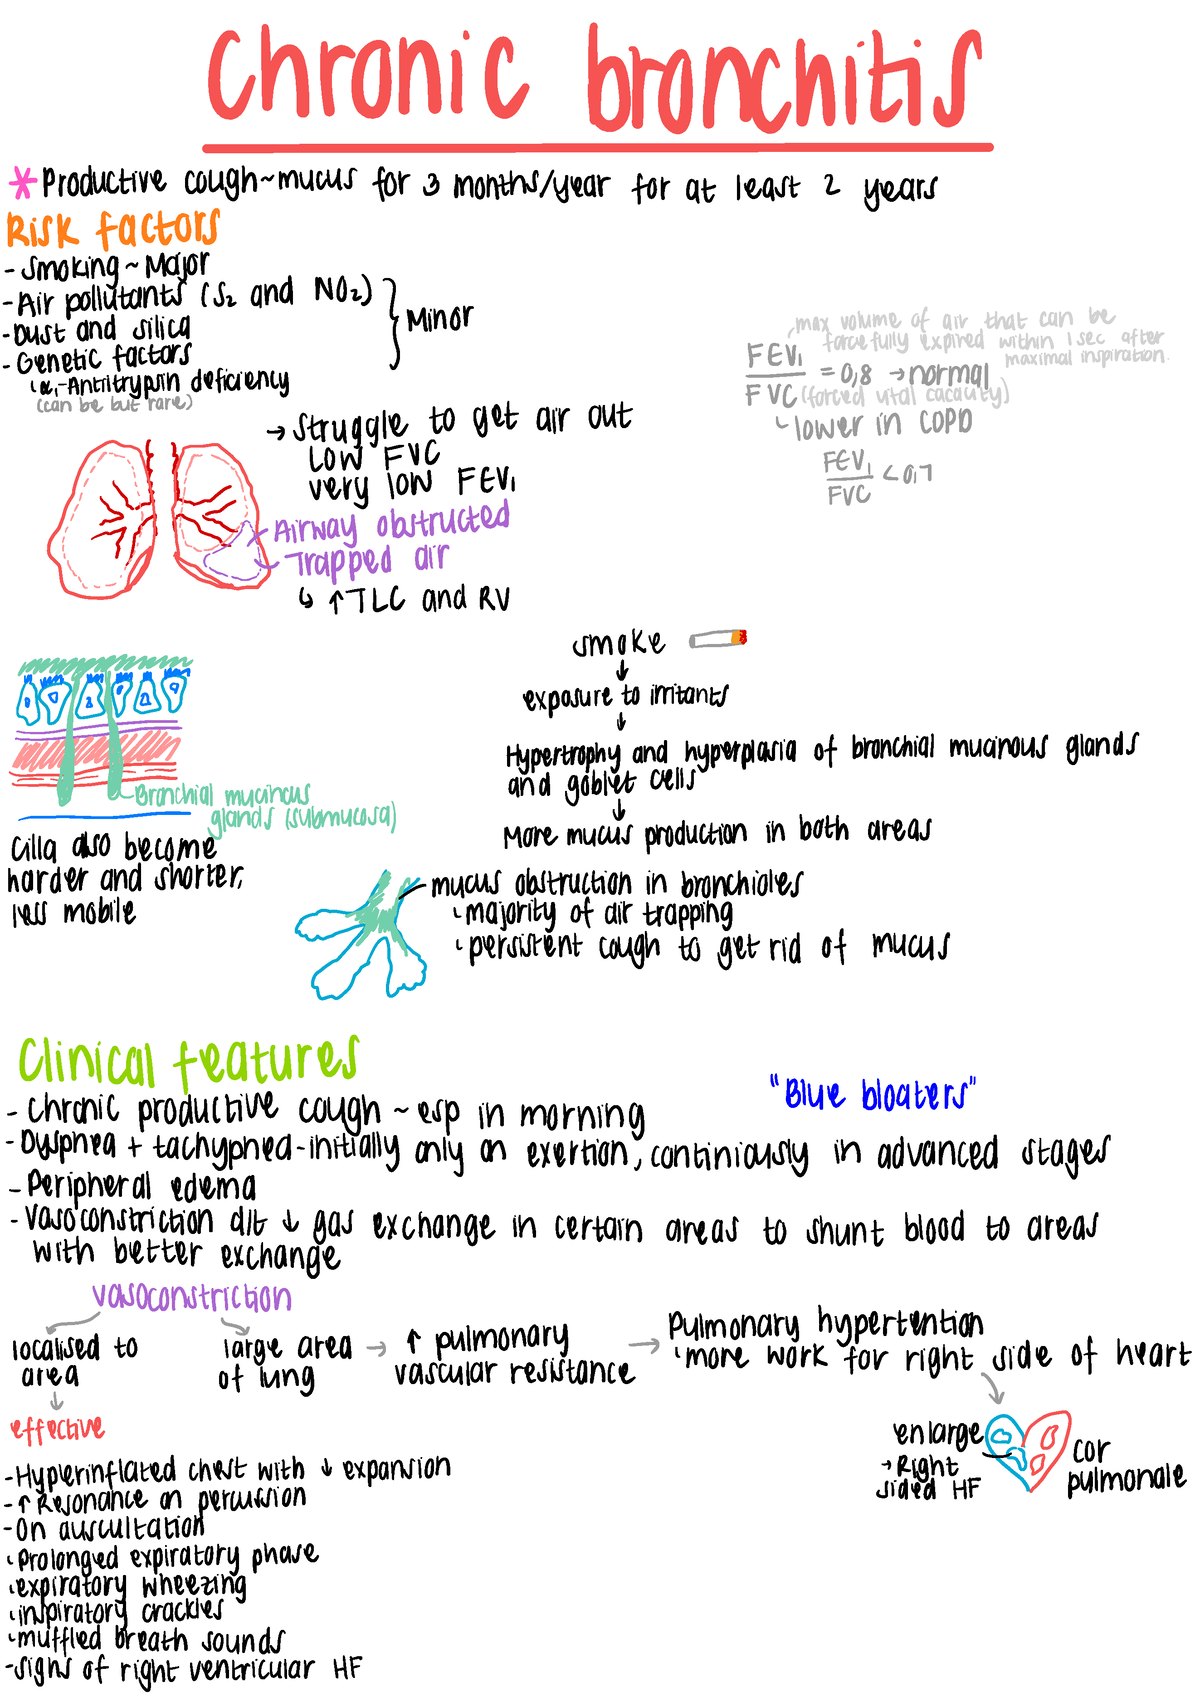 Chronic bronchitis
* Productive cough ~ mucus for 3 months/year for at least 2 years
Risk factors
- Smoking ~ Major
- Air pollutants (S₂ and NO₂)
- Dust and silica
- Genetic factors
Minor
↳ α₁-Antitrypsin deficiency
(can be but rare)
max volume of air that can be
forcefully expired within 1 sec after
maximal inspiration.
FEV₁
= 0,8 → normal
FVC (forced vital cacacity)
↳ lower in COPD
FEV₁
< 0,7
FVC
→ Struggle to get air out
Low FVC
very low FEV₁
Airway obstructed
Trapped air
↳ ↑TLC and RV
smoke
↓
exposure to irritants
↓
Hypertrophy and hyperplasia of bronchial mucinous glands
and goblet cells
↓
More mucus production in both areas
Bronchial mucinous
glands (submucosa)
Cilla also become
harder and shorter,
less mobile
mucus obstruction in bronchioles
↳ majority of air trapping
↳ persistent cough to get rid of mucus
Clinical features
"Blue bloaters"
- Chronic productive cough ~ esp in morning
- Dyspnea + tachypnea - initially only on exertion, continiously in advanced stages
- Peripheral edema
- Vasoconstriction d/t ↓ gas exchange in certain areas to shunt blood to areas
with better exchange
vasoconstriction
localised to
area
↓
effective
large area
of lung
→ ↑ pulmonary
vascular resistance
→ Pulmonary hypertention
↳ more work for right side of heart
enlarge
→ Right
sided HF
cor
pulmonale
- Hyperinflated chest with ↓ expansion
- ↑ Resonance on percussion
- On auscultation
↳ Prolonged expiratory phase
↳ expiratory wheezing
↳ inspiratory crackles
↳ muffled breath sounds
- signs of right ventricular HF